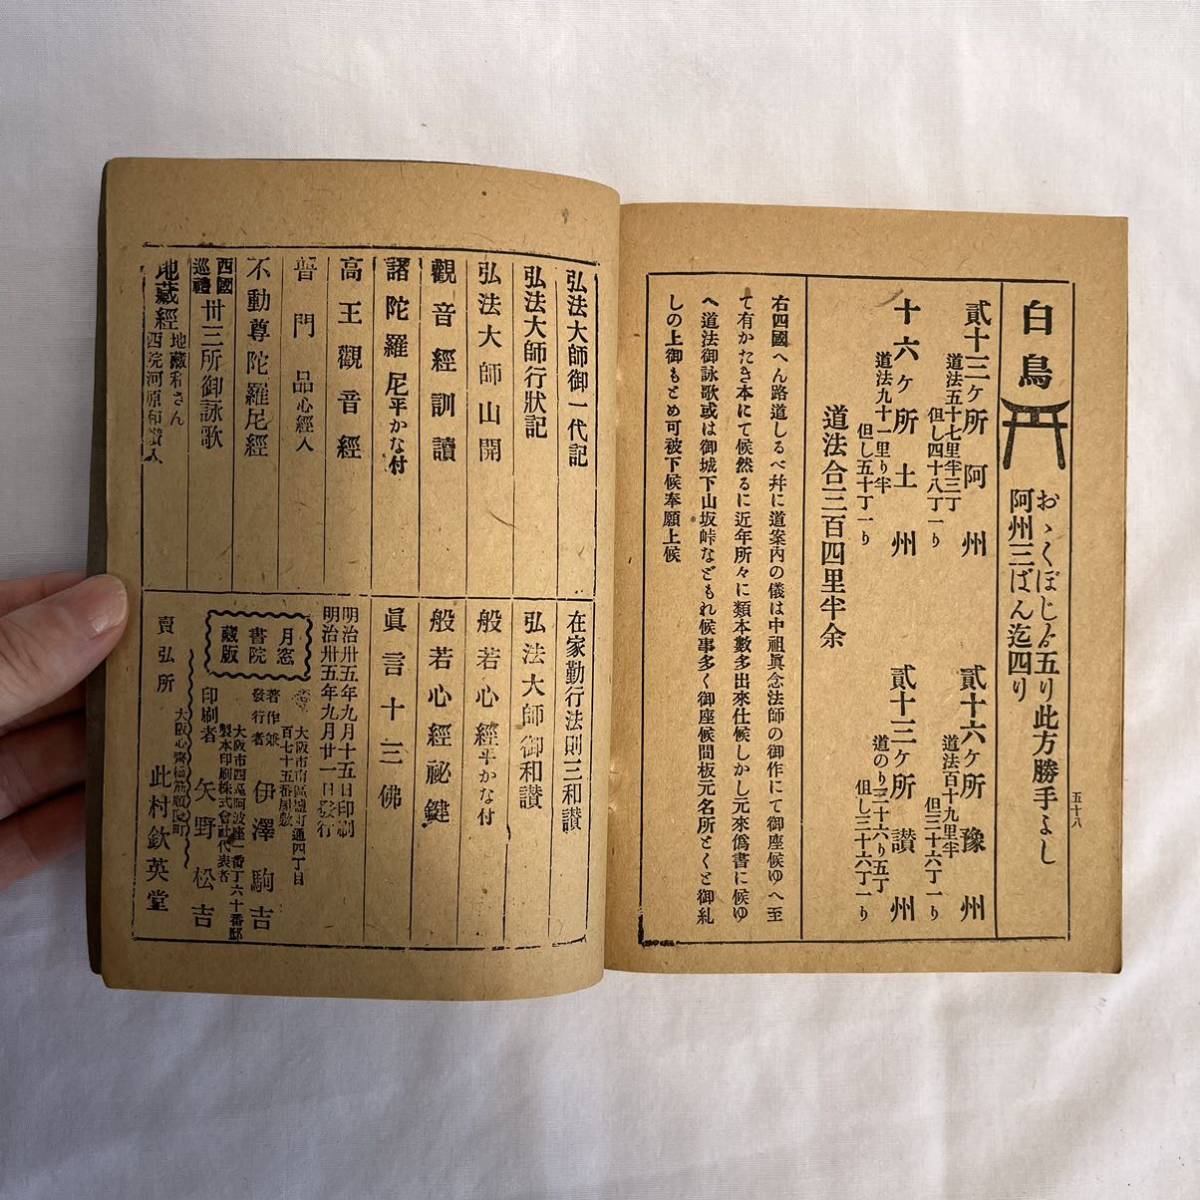 五十八
白鳥
おゝくぼじゟ五り此方勝手よし
阿州三ばん迄四り
貳十三ケ所阿州
道法五十七里半三丁
但し四十八丁一り
貳十六ケ所豫州
道法百十九里半
但三十六丁一り
十六ケ所土州
道法九十一里り半
但し五十丁一り
貳十三ケ所讃州
道のり三十六り五丁
但し三十六丁一り
道法合三百四里半余
右四國へん路道しるべ幷に道案内の儀は中祖眞念法師の御作にて御座候ゆへ至
て有かたき本にて候然るに近年所々に類本數多出來仕候しかし元來僞書に候ゆ
へ道法御詠歌或は御城下山坂峠などもれ候事多く御座候間板元名所とくと御糺
しの上御もとめ可被下候奉願上候
弘法大師御一代記
弘法大師行狀記
弘法大師山開
觀音經訓讀
諸陀羅尼平かな付
高王觀音經
普門品心經入
不動尊陀羅尼經
西國巡禮卅三所御詠歌
地藏經
地藏和さん
西院河原和讃入
在家勤行法則三和讃
弘法大師御和讃
般若心經平かな付
般若心經祕鍵
眞言十三佛
明治卅五年九月十五日印刷
明治卅五年九月廿一日發行
月窓書院藏版
百七十五番屋敷
著作兼發行者 伊澤駒吉
大阪市西區阿波座一番丁六十番邸
製本印刷株式會社代表者
印刷者 矢野松吉
賣弘所
此村欽英堂